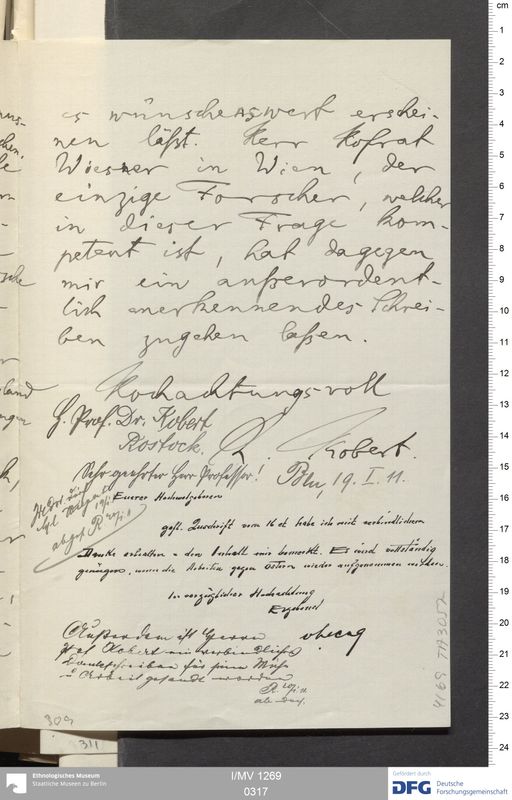 es wünschenswert erschei-
nen läßt. Herr Hofrat
Wiesner in Wien, der
einzige Forscher, welcher
in dieser Frage kom-
petent ist, hat dagegen
mir ein außerordent-
lich anerkennendes Schrei-
ben zugehen laßen.
Hochachtungsvoll
R. Kobert.
H. Prof. Dr. Kobert
Rostock.
Sehr geehrter Herr Professor!
Bln, 19. I. 11.
Euerer Hochwohlgeboren
gefl. Zuschrift vom 16 ct habe ich mit verbindlichem
Danke erhalten u den Inhalt mir bemerkt. Es wird vollständig
genügen, wenn die Arbeiten gegen Ostern wieder aufgenommen werden.
In vorzüglicher Hochachtung
Ergebenst
Außerdem ist Herrn
Prof. Kobert ein verbindliches
Dankschreiben für seine Mühe
u Arbeit gesandt worden
309
311
cm
1
2
3
4
5
6
7
8
9
10
11
12
13
14
15
16
17
18
19
20
21
22
23
24
Ethnologisches Museum
Staatliche Museen zu Berlin
I/MV 1269
0317
Gefördert durch
DFG Deutsche
Forschungsgemeinschaft